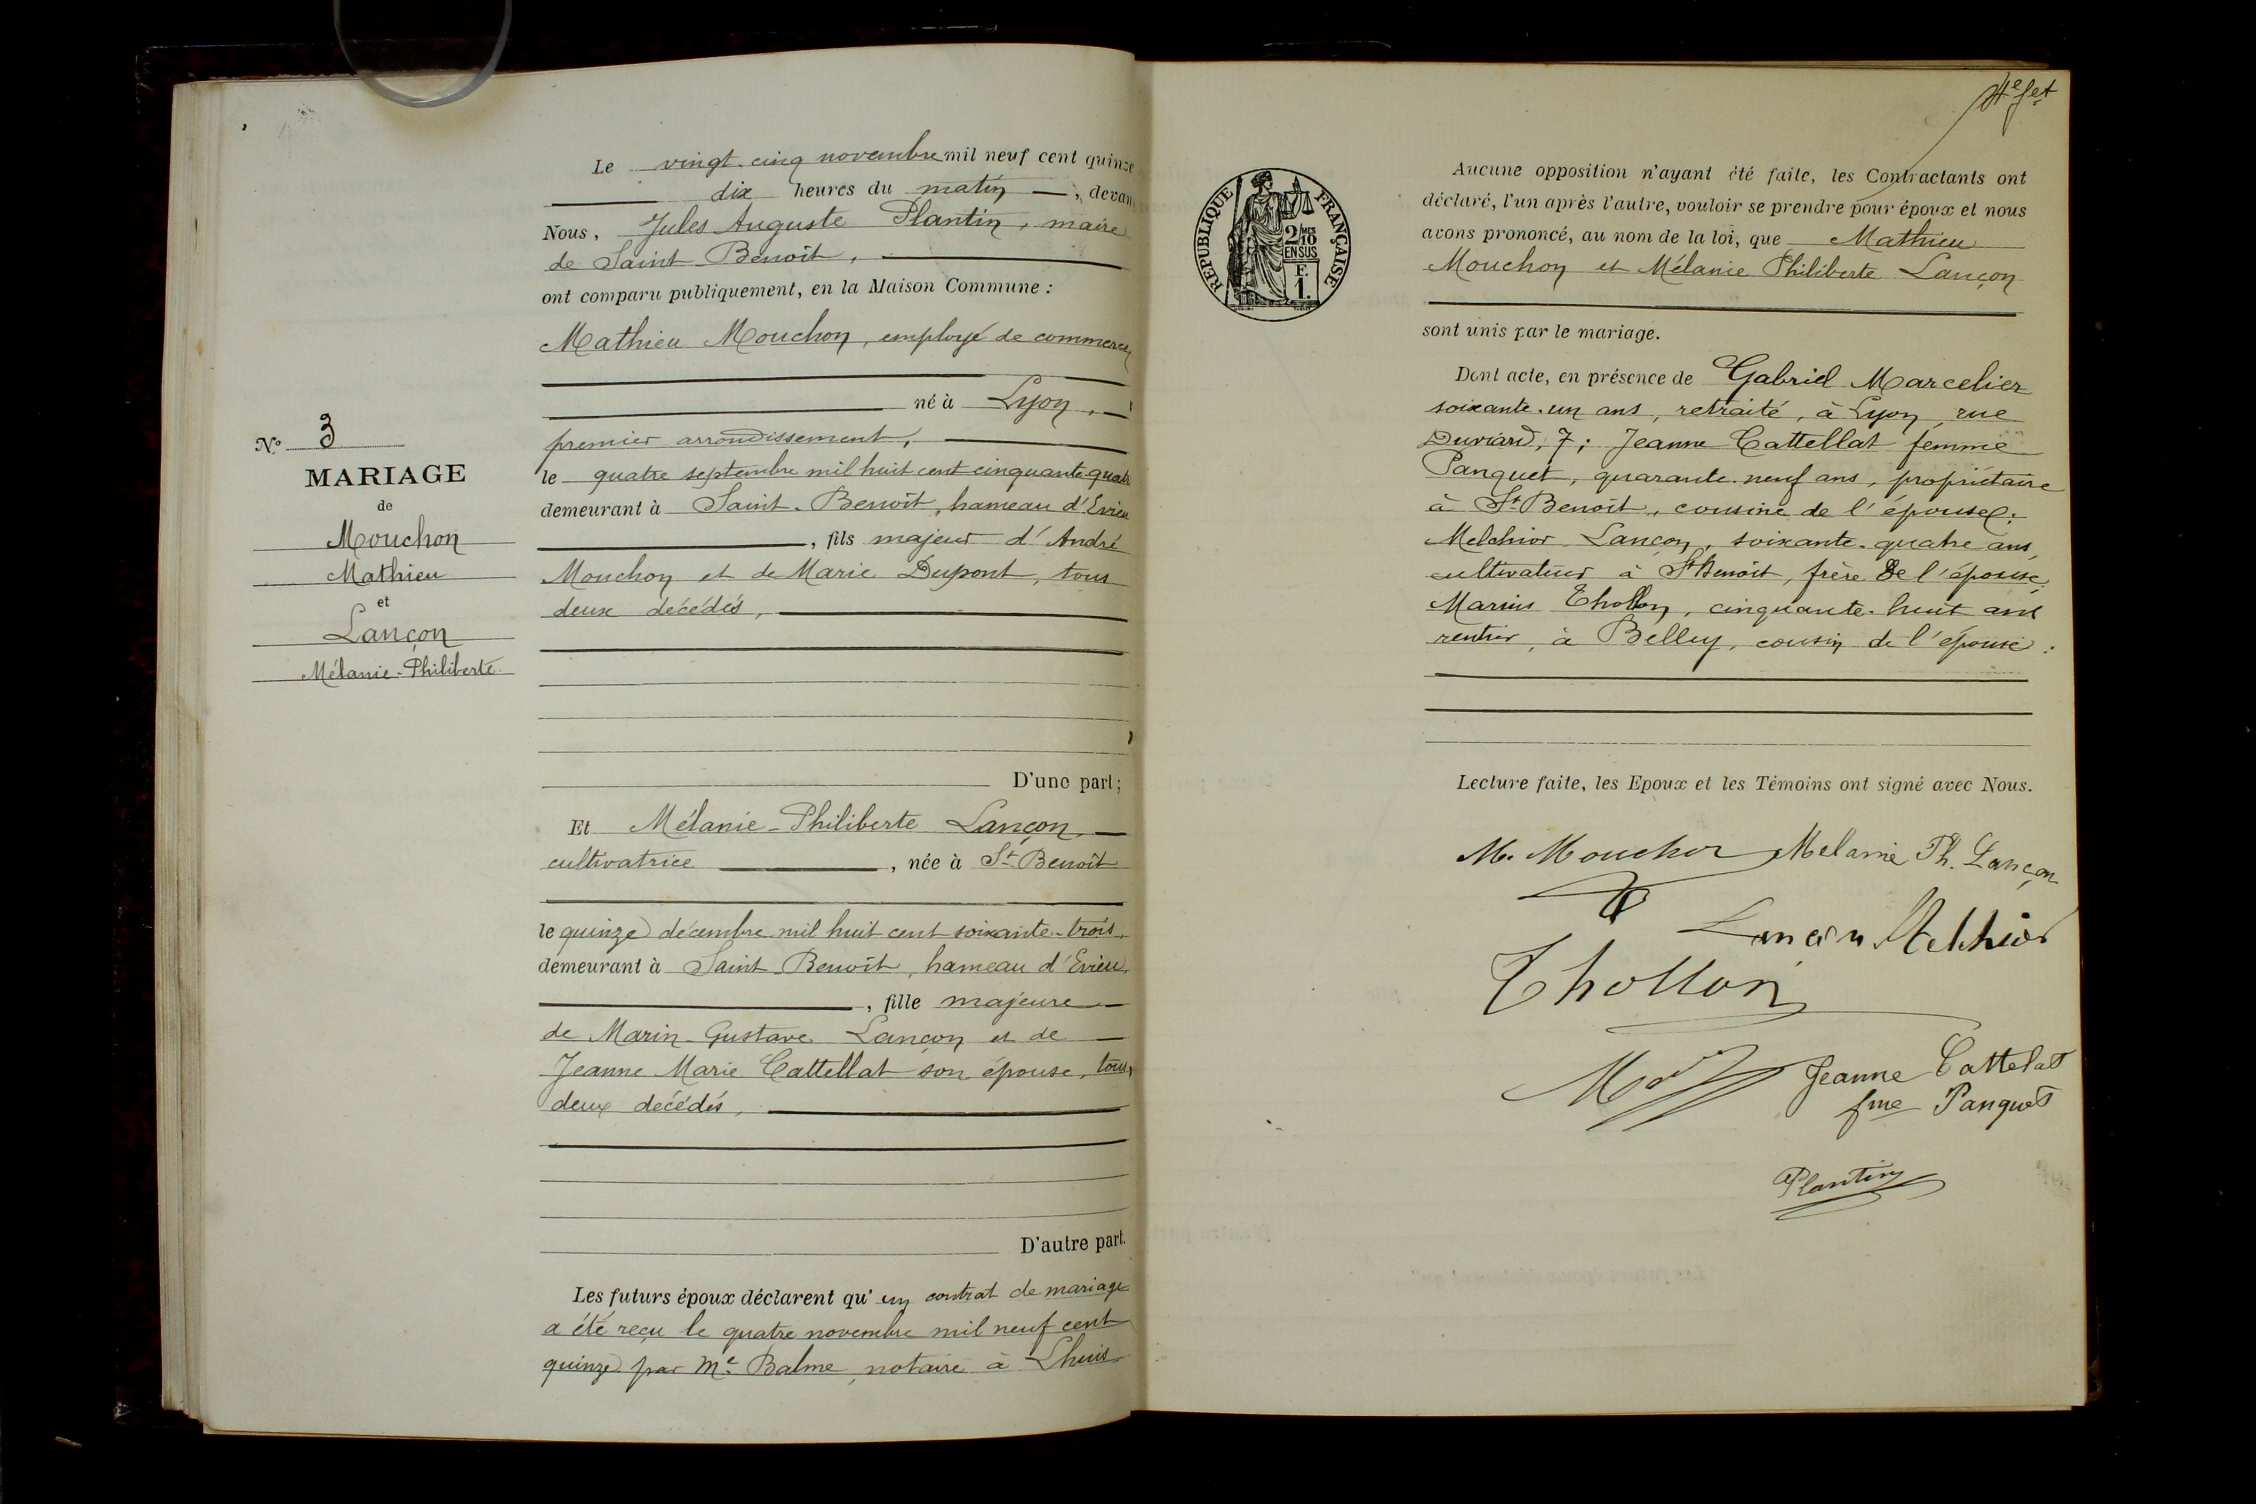 Le vingt-cinq novembre mil neuf cent quinze
dix heures du matin, devant
Nous, Jules Auguste Plantin, maire
de Saint-Benoît,
ont comparu publiquement, en la Maison Commune :
Mathieu Mouchon, employé de commerce
né à Lyon,
premier arrondissement,
le quatre septembre mil huit cent cinquante-quatre
demeurant à Saint-Benoît, hameau d'Evieu
, fils majeur d'André
Mouchon et de Marie Dupont, tous
deux décédés,
D'une part ;
Et Mélanie-Philiberte Lançon
cultivatrice, née à St Benoît
le quinze décembre mil huit cent soixante-trois,
demeurant à Saint-Benoît, hameau d'Evieu,
, fille majeure
de Marin-Gustave Lançon et de
Jeanne Marie Cattellat son épouse, tous
deux décédés,
D'autre part.
Les futurs époux déclarent qu'un contrat de mariage
a été reçu le quatre novembre mil neuf cent
quinze par Me Balme, notaire à Lhuis
No 3
MARIAGE
de
Mouchon
Mathieu
et
Lançon
Mélanie-Philiberte
4e fet
RÉPUBLIQUE FRANÇAISE
2/10 MES
EN SUS
F.
1.
Aucune opposition n'ayant été faite, les Contractants ont
déclaré, l'un après l'autre, vouloir se prendre pour époux et nous
avons prononcé, au nom de la loi, que Mathieu
Mouchon et Mélanie Philiberte Lançon
sont unis par le mariage.
Dont acte, en présence de Gabriel Marcelier
soixante-un ans, retraité, à Lyon, rue
Duviard, 7 ; Jeanne Cattellat femme
Panquet, quarante-neuf ans, propriétaire
à St Benoît, cousine de l'épouse ;
Melchior Lançon, soixante-quatre ans,
cultivateur à St Benoît, frère de l'épouse,
Marius Thollon, cinquante-huit ans
rentier, à Belley, cousin de l'épouse.
Lecture faite, les Epoux et les Témoins ont signé avec Nous.
M. Mouchon Melanie Ph. Lançon
Lançon Melchior
Thollon
Jeanne Cattelat
fme Panquet
Plantin